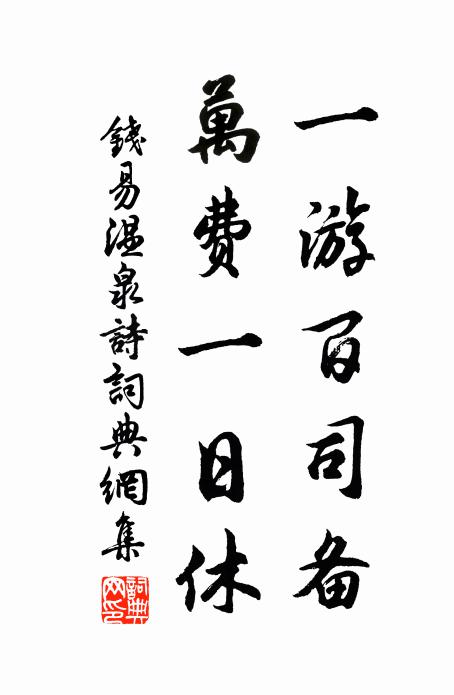 一游百司备
萬费一日休
錢易温泉詩詞典網集
詞典
网印